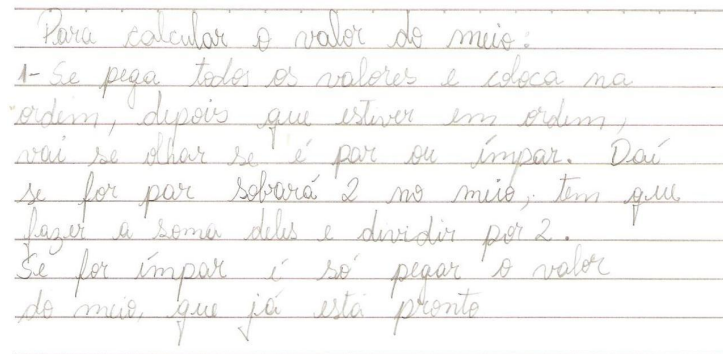 Para calcular o valor do meio:
1- Se pega todos os valores e coloca na
ordem, depois que estiver em ordem,
vai se olhar se é par ou ímpar. Daí
se for par sobrará 2 no meio, tem que
fazer a soma deles e dividir por 2.
Se for ímpar é só pegar o valor
do meio, que já está pronto